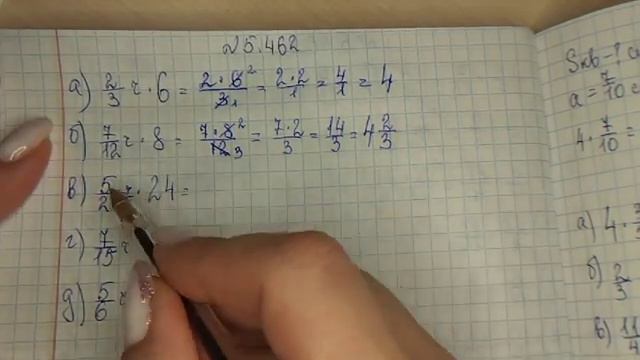 №5.462
а) 2/3 ч · 6 = 2·6²/3₁ = 2·2/1 = 4/1 = 4
б) 7/12 ч · 8 = 7·8²/12₃ = 7·2/3 = 14/3 = 4 2/3
в) 5/2 · 24 =
г) 7/15 ч
д) 5/6 ч
Sкв-?
a = 7/10
4 · 7/10 =
а) 4 ·
б) 2/3
в) 11/4